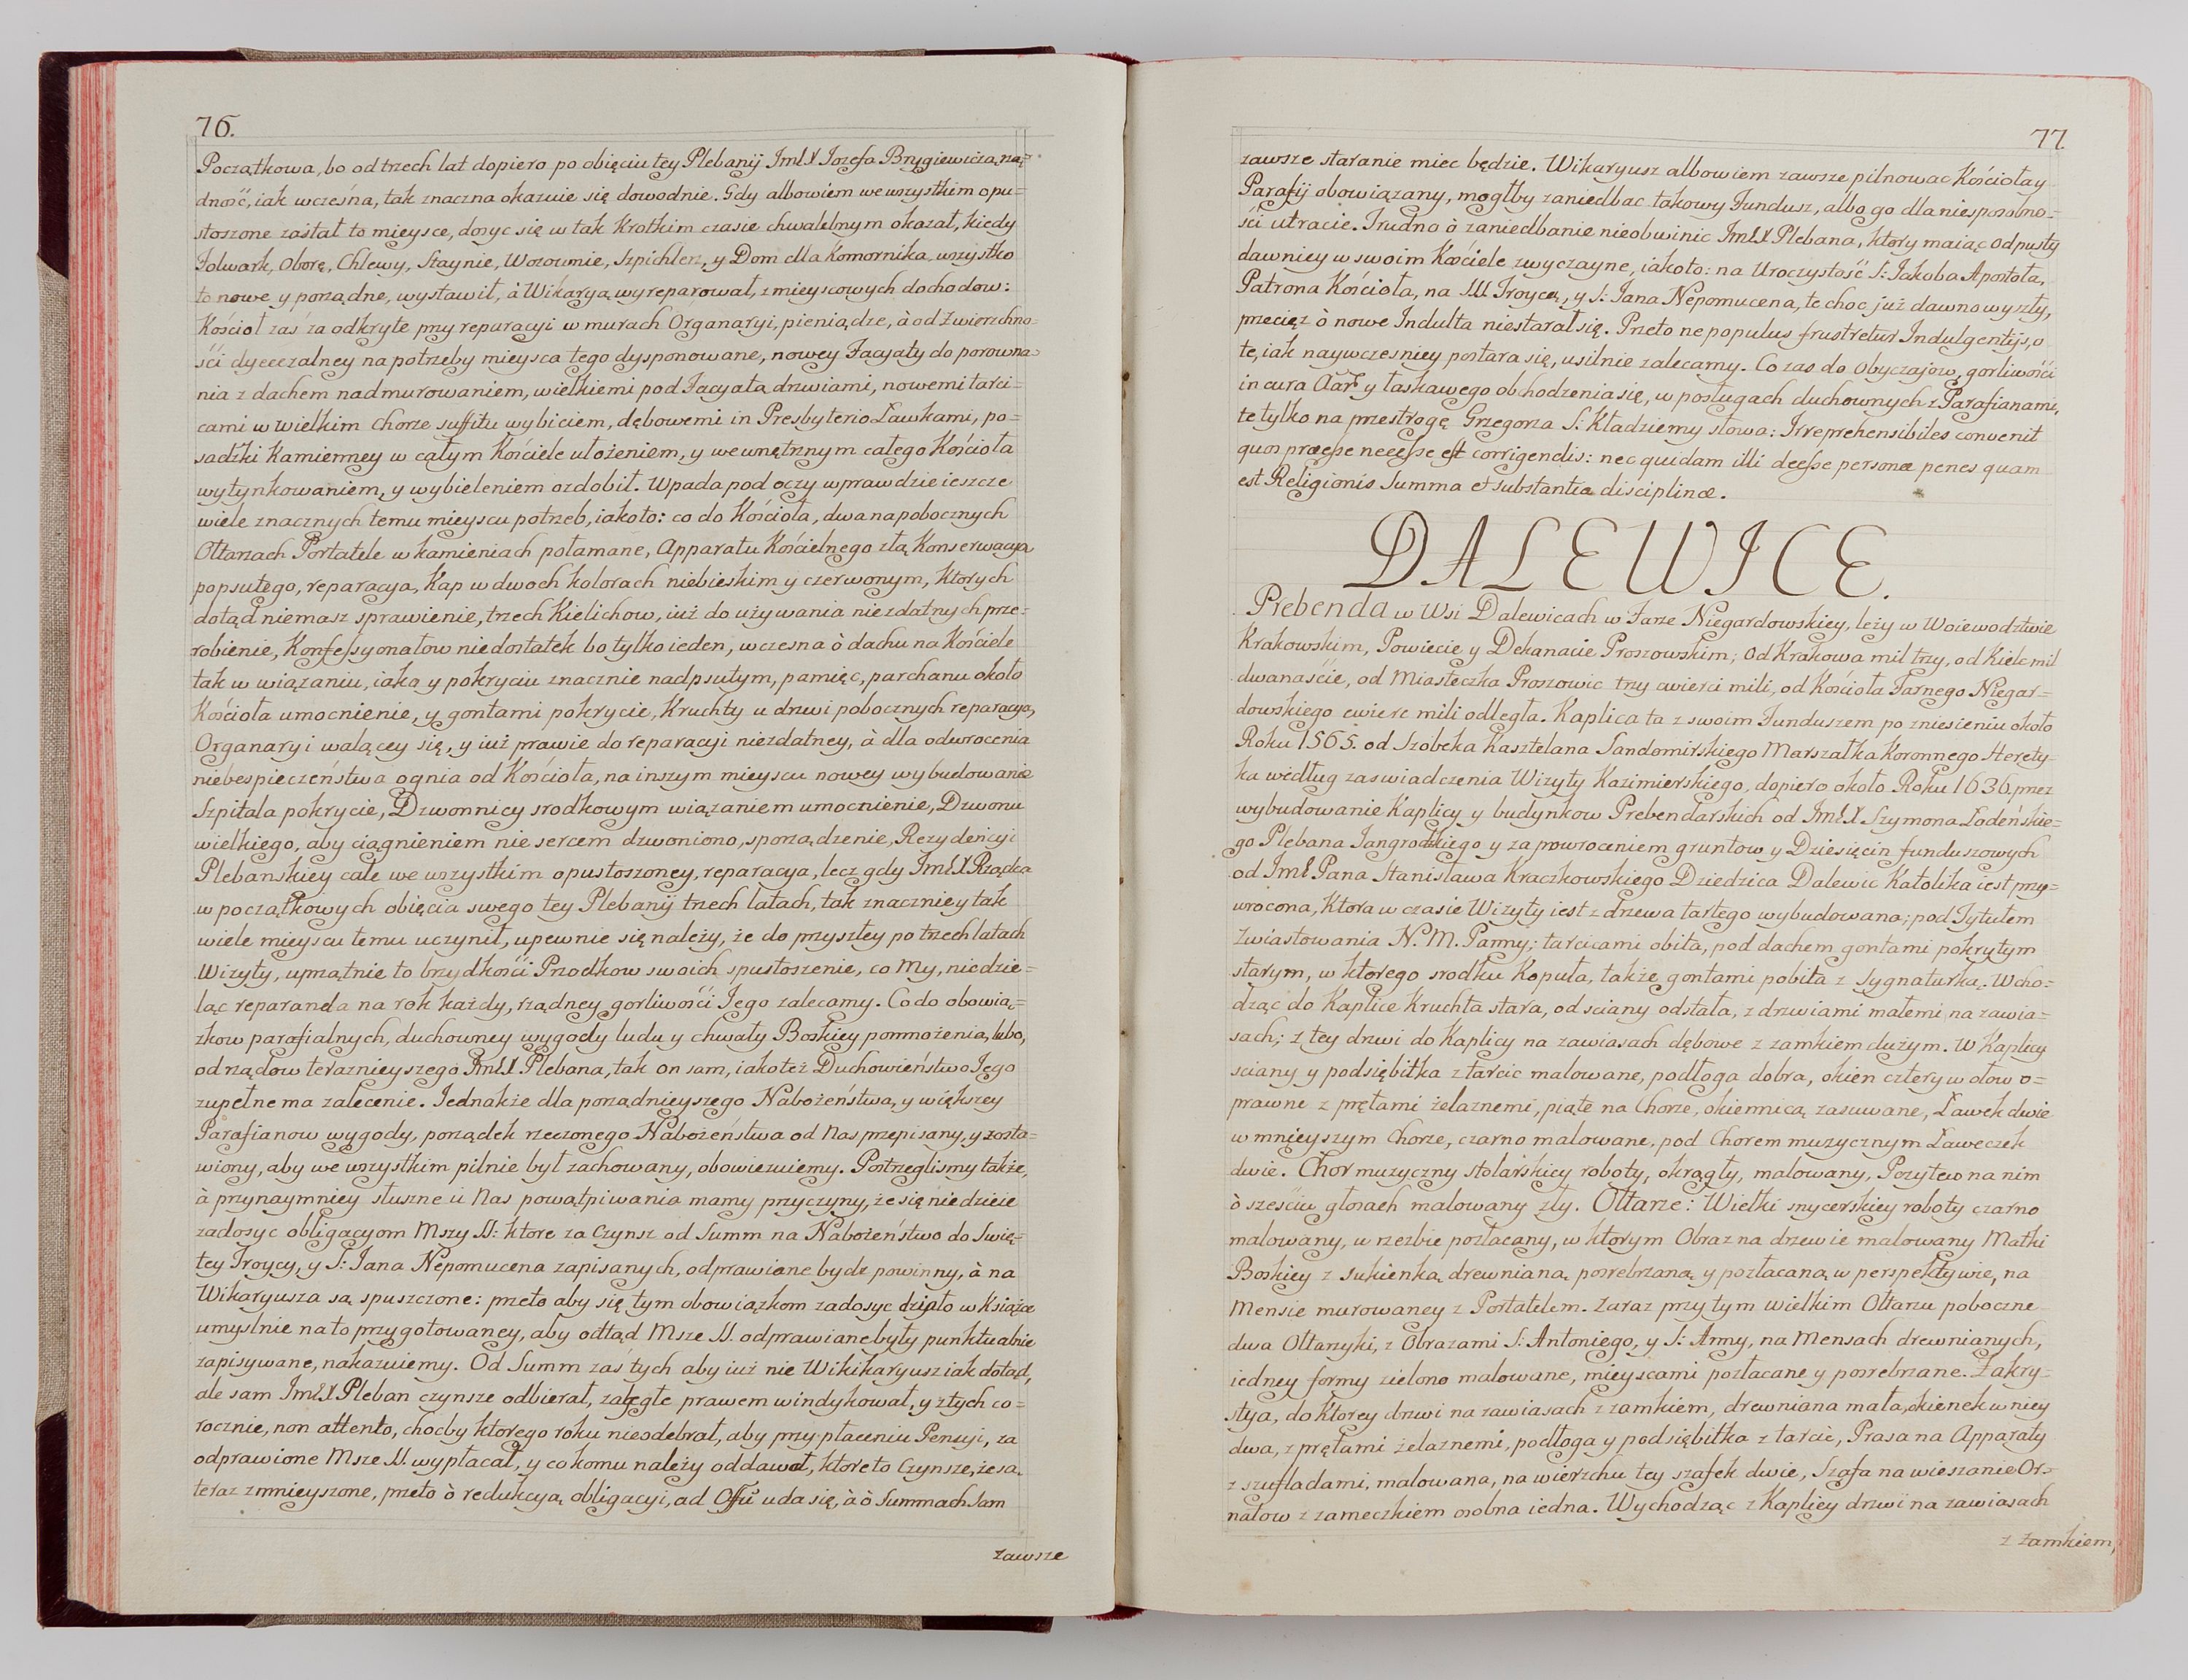 76.
Początkowa, bo od trzech lat dopiero po obięciu tey Plebanij ImX Iozefa Brygiewicza, rzą=
dność, iak wcześna, tak znaczna okazuie się dowodnie. Gdy albowiem we wszystkim opu=
stoszone zastał to mieysce, dosyc się w tak krotkim czasie chwalebnym okazał, kiedy
Folwark, Oborę, Chlewy, Staynie, Wozownie, Szpichlerz, y Dom dla Komornika, wszystko
to nowe y porządne, wystawił, à Wikaryą wyreparował, z mieyscowych dochodow:
Kościoł zaś za odkryte przy reparacyi w murach Organaryi, pieniądze, à od Zwierzchno=
ści dyecezalney na potrzeby mieysca tego dysponowane, nowey Facyaty do porowna=
nia z dachem nadmurowaniem, wielkiemi pod Facyatą drzwiami, nowemi tarci=
cami w wielkim Chorze suffitu wybiciem, dębowemi in Presbyterio Ławkami, po=
sadzki Kamienney w całym Kościele ułożeniem, y wewnętrznym całego Kościoła
wytynkowaniem, y wybieleniem ozdobił. Wpada pod oczy wprawdzie ieszcze
wiele znacznych temu mieyscu potrzeb, iakoto: co do Kościoła, dwa na pobocznych
Ołtarzach Portatele w kamieniach połamane, Apparatu Kościelnego złą Konserwacyą
popsutego, reparacya, Kap w dwoch kolorach niebieskim y czerwonym, ktorych
dotąd niemasz sprawienie, trzech Kielichow, iuż do używania niezdatnych prze=
robienie, Konfessyonałow niedostatek bo tylko ieden, wczesna ò dachu na Kościele
tak w wiązaniu, iako y pokryciu znacznie nadpsutym, pamięc, parchanu około
Kościoła umocnienie, y gontami pokrycie, Kruchty u drzwi pobocznych reparacya,
Organaryi walącey się, y iuż prawie do reparacyi niezdatney, à dla odwrocenia
niebespieczeństwa ognia od Kościoła, na inszym mieyscu nowey wybudowanie
Szpitala pokrycie, Dzwonnicy srodkowym wiązaniem umocnienie, Dzwonu
wielkiego, aby ciągnieniem nie sercem dzwoniono, sporządzenie, Rezydencyi
Plebanskiey cale we wszystkim opustoszoney, reparacya, lecz gdy ImX Rządca
w początkowych obięcia swego tey Plebanij trzech latach, tak znaczniey tak
wiele mieyscu temu uczynił, upewnie się należy, że do przyszłey po trzech latach
Wizyty, uprzątnie to brzydkości Przodkow swoich spustoszenie, co My, niedzie=
ląc reparanda na rok każdy, rządney gorliwości Iego zalecamy. Co do obowią=
zkow parafialnych, duchowney wygody ludu y chwały Boskiey pomnożenia, lubo,
od rządow teraznieyszego ImX Plebana, tak on sam, iako też Duchowieństwo Iego
zupełne ma zalecenie. Iednakże dla porządnieyszego Nabożeństwa, y większey
Parafianow wygody, porządek rzeczonego Nabożeństwa od Nas przepisany, y zosta=
wiony, aby we wszystkim pilnie był zachowany, obowiezuiemy. Postrzeglismy także,
à przynaymniey słuszne ù Nas powątpiwania mamy przyczyny, że się nie dzieie
zadosyc obligacyom Mszy SS: ktore za Czynsz od Summ na Nabożeństwo do Swię=
tey Troycy, y S: Iana Nepomucena zapisanych, odprawiane bydz powinny, à na
Wikaryusza są spuszczone: przeto aby się tym obowiązkom zadosyc działo w Książce
umyslnie na to przygotowaney, aby odtąd Msze SS. odprawiane były punktualnie
zapisywane, nakazuiemy. Od Summ zaś tych aby iuż nie Wikikaryusz iak dotąd,
ale sam ImX Pleban czynsze odbierał, zaległe prawem windykował, y z tych co=
rocznie, non attento, chocby ktorego roku nieodebrał, aby przy płaceniu Pensyi, za
odprawione Msze SS. wypłacał, y co komu należy oddawał, ktoreto Czynsze, że są
teraz zmnieyszone, przeto ò redukcyą obligacyi, ad Offū uda się, à ò Summach Sam
zawsze
77.
zawsze staranie miec będzie. Wikaryusz albowiem zawsze pilnowac Kościoła y
Parafij obowiązany, mogłby zaniedbac takowy Fundusz, albo go dla niesposobno=
ści utracie. Trudno ò zaniedbanie nieobwinic ImX Plebana, ktory maiąc Odpusty
dawniey w swoim Kościele zwyczayne, iakoto: na Uroczystość S: Iakoba Apostoła,
Patrona Kościoła, na SSS Troycę, y S: Iana Nepomucena, te choc już dawno wyszły,
przecięż ò nowe Indulta niestarał się. Przeto ne populus frustretur Indulgentijs, o
te, iak naywczesniey postara się, usilnie zalecamy. Co zas do Obyczajow, gorliwości
in cura Aār y łaskawego obchodzenia się, w posługach duchownych z Parafianami,
te tylko na przestrogę Grzegorza S. Kładziemy słowa: Irreprehensibiles convenit
quos præesse necesse est corrigendis: nec quidam illi deesse personæ penes quam
est Religionis Summa et substantia disciplinæ.
DALEWICE.
Prebenda w Wsi Dalewicach w Farze Niegardowskiey, leży w Woiewodztwie
Krakowskim, Powiecie y Dekanacie Proszowskim; Od Krakowa mil trzy, od Kielc mil
dwanaście, od Miasteczka Proszowic trzy cwierci mili, od Kościoła Farnego Niegar=
dowskiego cwierc mili odległa. Kaplica ta z swoim Funduszem po zniesieniu około
Roku 1565. od Szobeka Kasztelana Sandomirskiego Marszałka Koronnego Herety=
ka według zaswiadczenia Wizyty Kazimierskiego, dopiero około Roku 1636. przez
wybudowanie Kaplicy y budynkow Prebendarskich od ImX. Szymona Lodeńskie=
go Plebana Iangrodzkiego y za powroceniem gruntow y Dziesięcin funduszowych
od Im Pana Stanisława Kraczkowskiego Dziedzica Dalewic Katolika iest przy=
wrocona, Ktora w czasie Wizyty iest z drzewa tartego wybudowana; pod Tytułem
Zwiastowania N. M. Panny; tarcicami obita, pod dachem gontami pokrytym
starym, w ktorego srodku Kopuła, także gontami pobita z Sygnaturką. Wcho=
dząc do Kaplice Kruchta stara, od sciany odstała, z drzwiami małemi na zawia=
sach; z tey drzwi do Kaplicy na zawiasach dębowe z zamkiem dużym. W Kaplicy
sciany y podsiębitka z tarcic malowane, podłoga dobra, okien cztery w ołow o=
prawne z prętami żelaznemi, piąte na Chorze, okiennicą zasuwane, Ławek dwie
w mnieyszym Chorze, czarno malowane, pod Chorem muzycznym Ławeczek
dwie. Chor muzyczny stolarskiey roboty, okrągły, malowany, Pozytew na nim
ò sześciu głosach malowany zły. Ołtarze: Wielki snycerskiey roboty czarno
malowany, w rzezbie pozłacany, w ktorym Obraz na drzewie malowany Matki
Boskiey z sukienką drewnianą, posrebrzaną y pozłacaną w perspektywie, na
Mensie murowaney z Portatelem. Zaraz przy tym wielkim Ołtarzu poboczne
dwa Ołtarzyki, z Obrazami S. Antoniego, y S: Anny, na Mensach drewnianych,
iedney formy zielono malowane, mieyscami pozłacane y posrebrzane. Zakry=
stya, do Ktorey drzwi na zawiasach z zamkiem, drewniana mała, okienek w niey
dwa, z prętami żelaznemi, podłoga y podsiębitka z tarcic, Prasa na Apparaty
z szufladami, malowana, na wierzchu tey szafek dwie, Szafa na wieszanie Or=
natow z zameczkiem osobna iedna. Wychodząc z Kaplicy drzwi na zawiasach
z zamkiem,